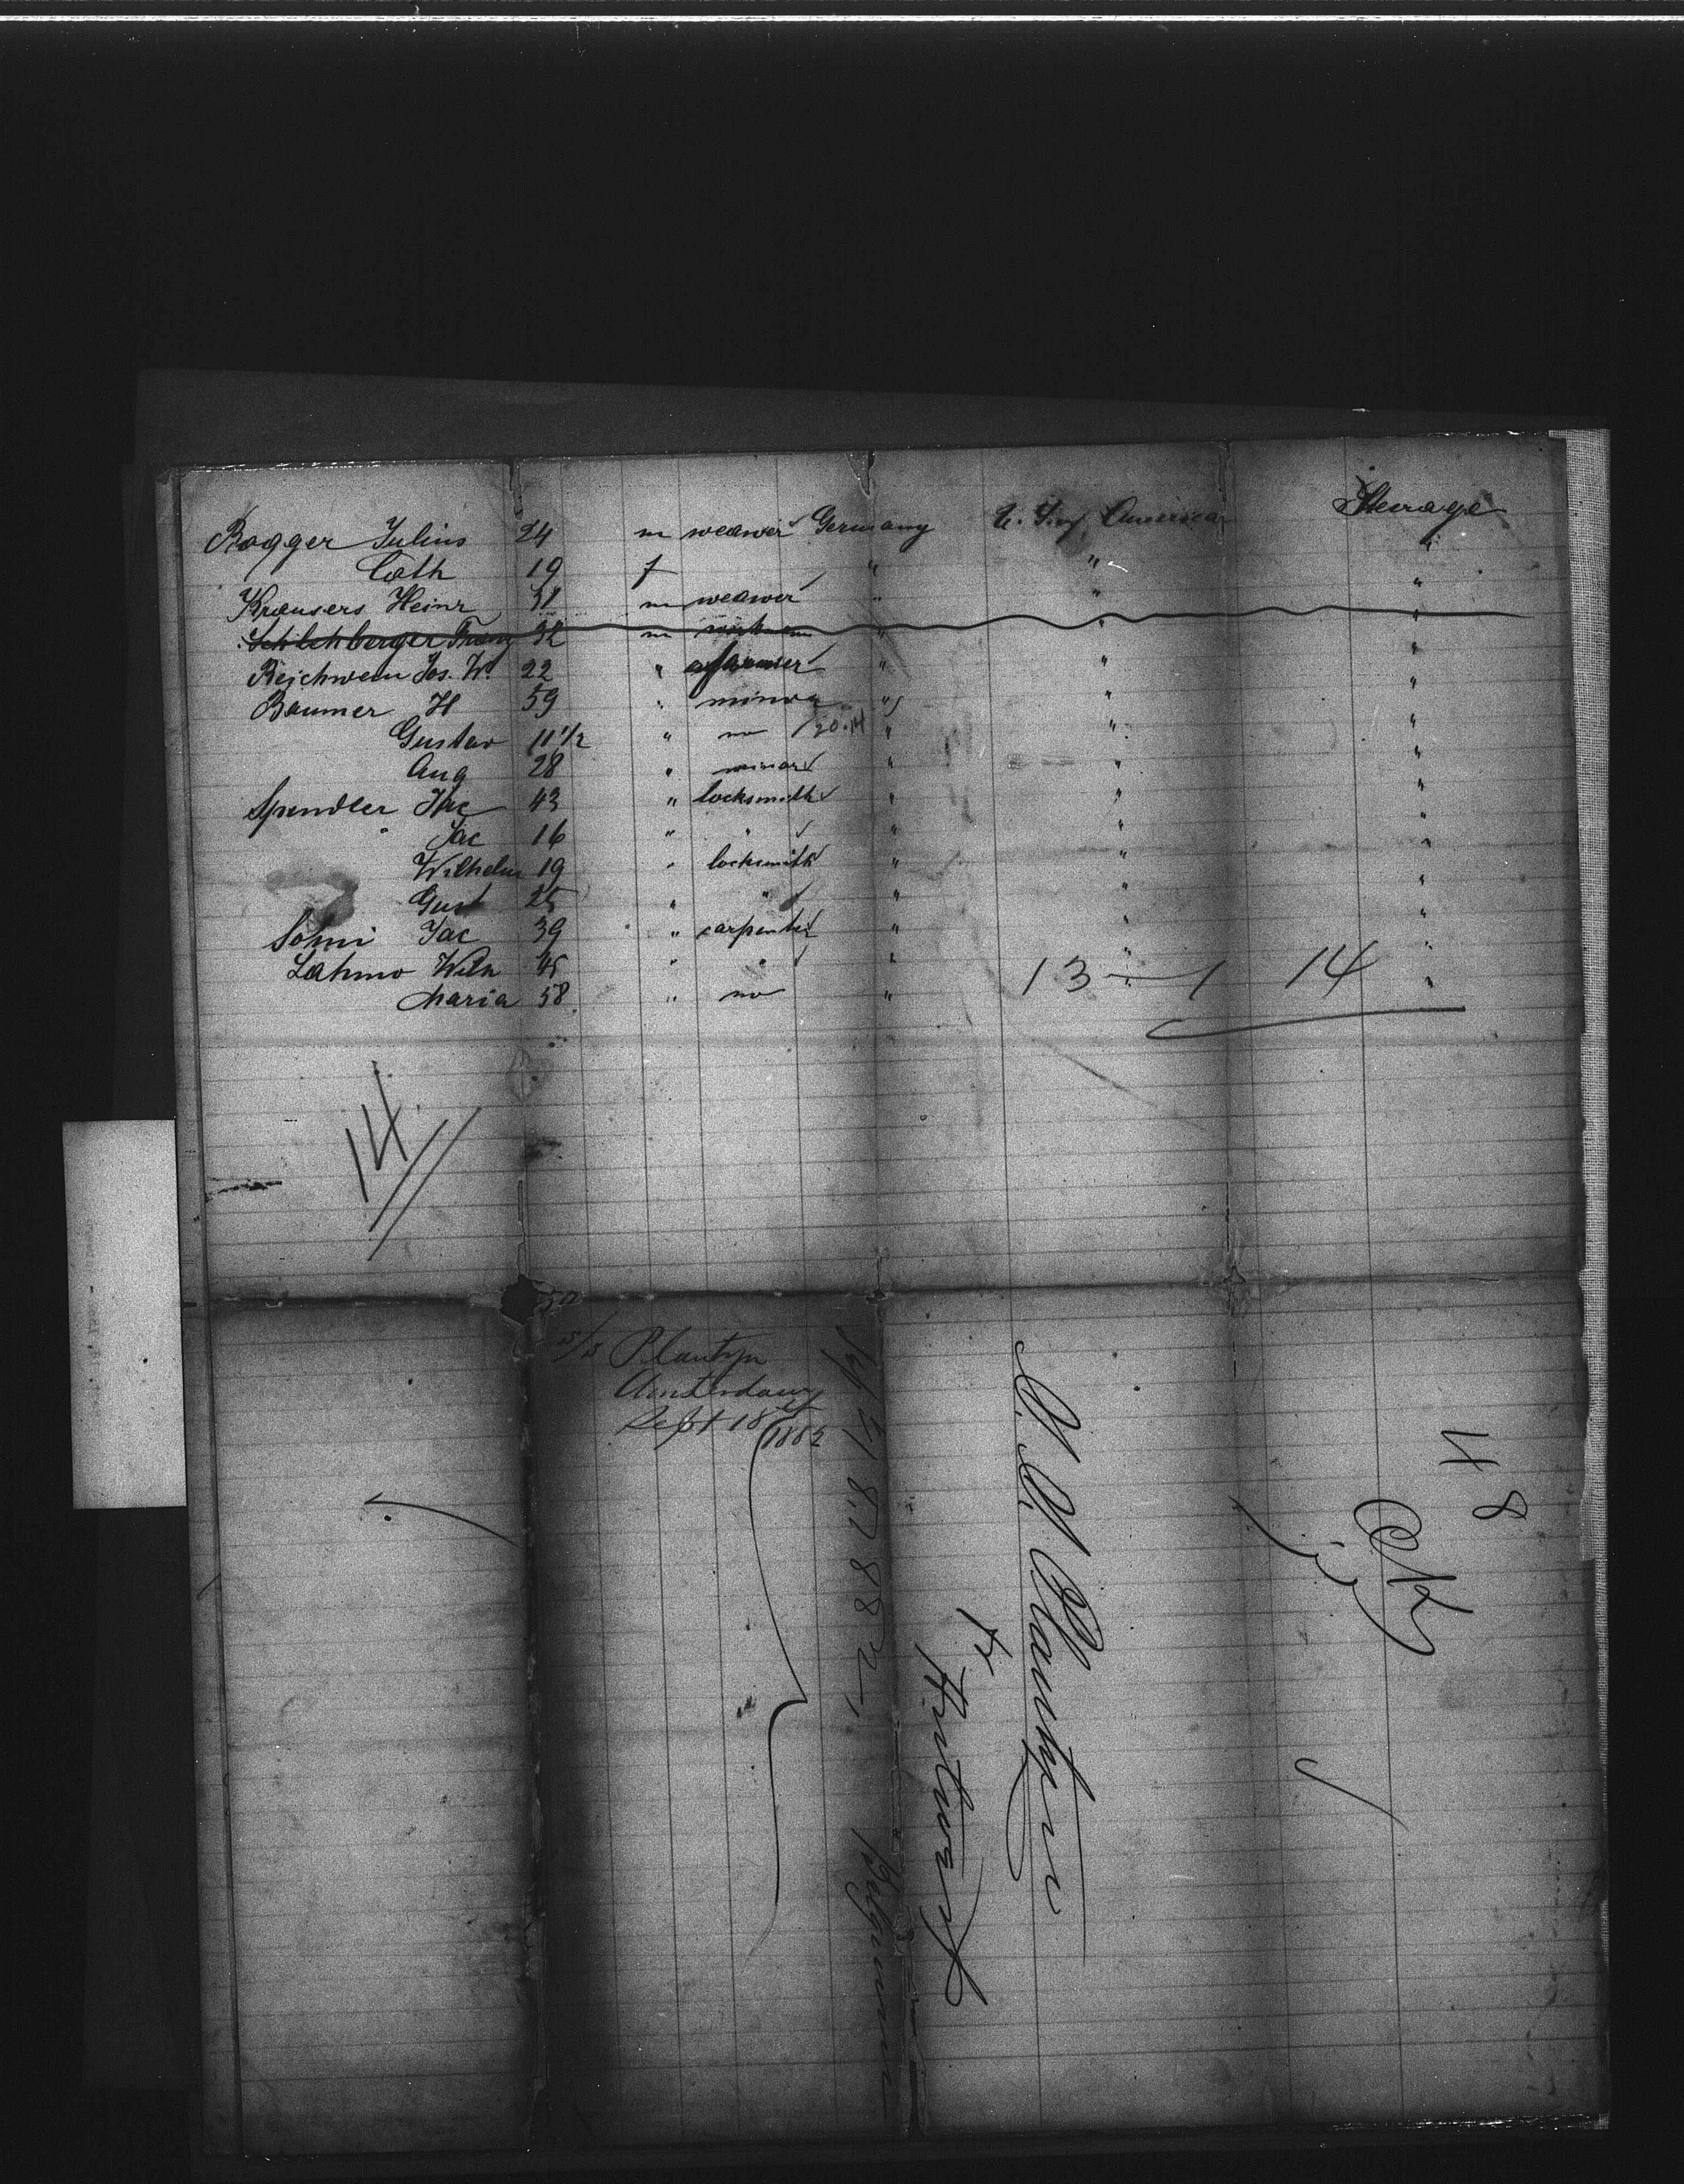 Rogger Julius 24 m weawer Germany U. St. of America Steerage
Cath 19 f " " "
Krausers Heinr 31 m weawer " " "
Schilchberger Franz 32 m " " "
Reichwein Jos. W. 22 " farmer " " "
Baumer H 59 " minor " " "
Gustav 11 1/2 " no " " "
Aug 28 " minor " " "
Spendler Jac 43 " locksmith " " "
Jac 16 " " " " "
Wilhelm 19 " locksmith " " "
Gust 25 " " " " "
Sohni Jac 39 " carpenter " " "
Lahmo Wilh 45 " " " " "
Maria 58 " no " " "
13 — 1 14
14
Plantyn
Amsterdam
Sept 18th
1882
Belgium
S. S. Plantyn
fr Antwerp
48
OK